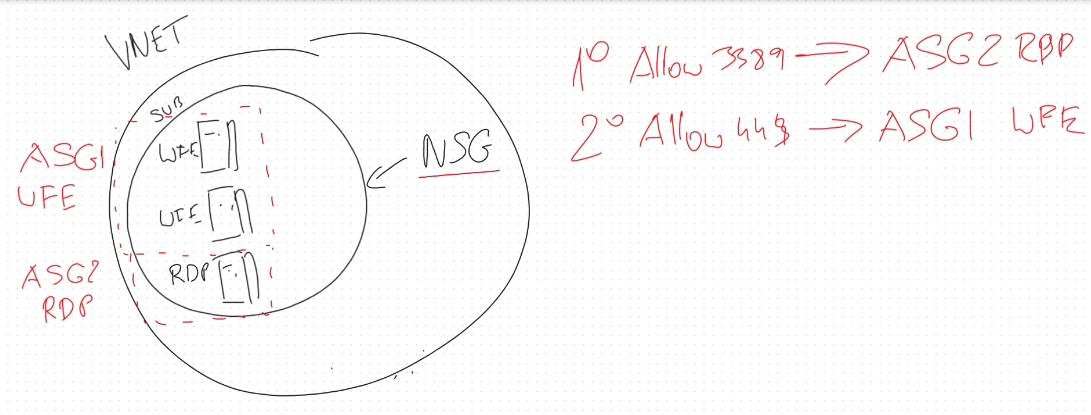 VNET
SUB
WFE
WFE
RDP
NSG
ASG1
WFE
ASG2
RDP
1º Allow 3389 → ASG2 RDP
2º Allow 443 → ASG1 WFE